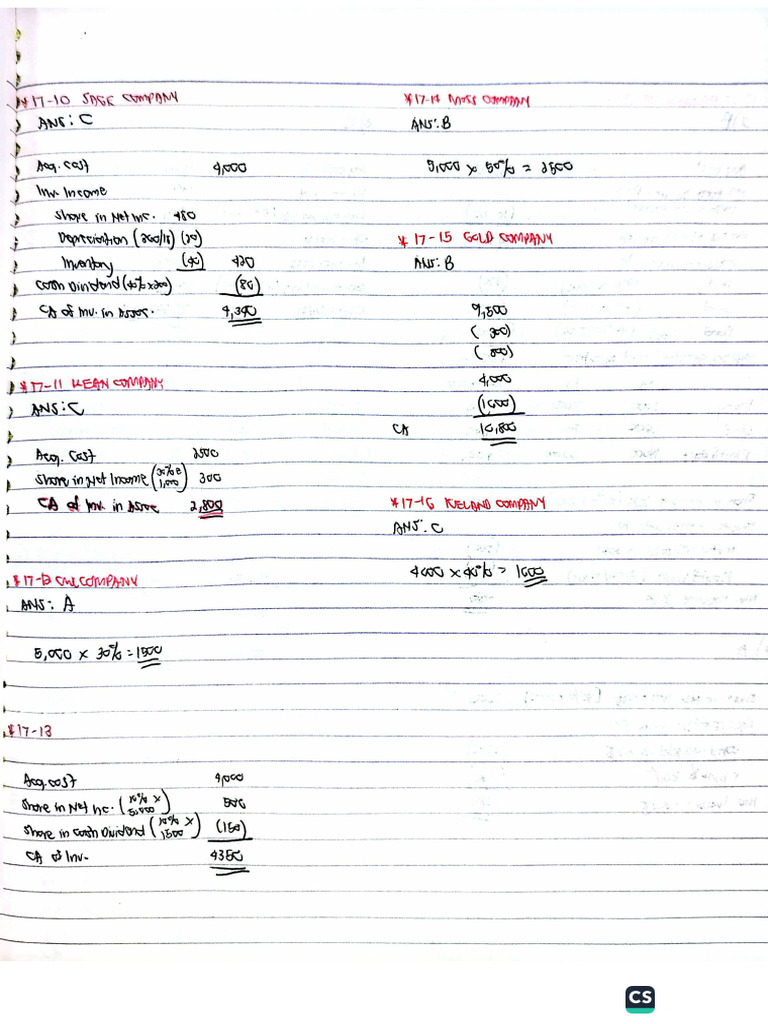 * 17-10 SAGE COMPANY
ANS: C
Acq. Cost 4,000
Inv. Income
Share in Net Inc. 480
Depreciation (200/10) (20)
Inventory (40) 420
Cash Dividend (40% x 200) (80)
CA of Inv. in Assoc. 4,340
* 17-11 KEAN COMPANY
ANS: C
Acq. Cost 2500
Share in Net Income (30% @ 1,000) 300
CA of Inv. in Assoc 2,800
COMPANY
ANS: A
5,000 x 30% = 1500
* 17-13
Acq. cost 4,000
Share in Net Inc. (10% x 5,000) 500
Share in Cash Dividend (10% x 1500) (150)
CA of Inv. 4350
* 17-14 MOSS COMPANY
ANS: B
5,000 x 50% = 2500
* 17-15 GOLD COMPANY
ANS: B
9,500
(300)
(800)
4,000
(1600)
CA 10,800
* 17-16 COMPANY
ANS: C
4000 x 40% = 1600
CS